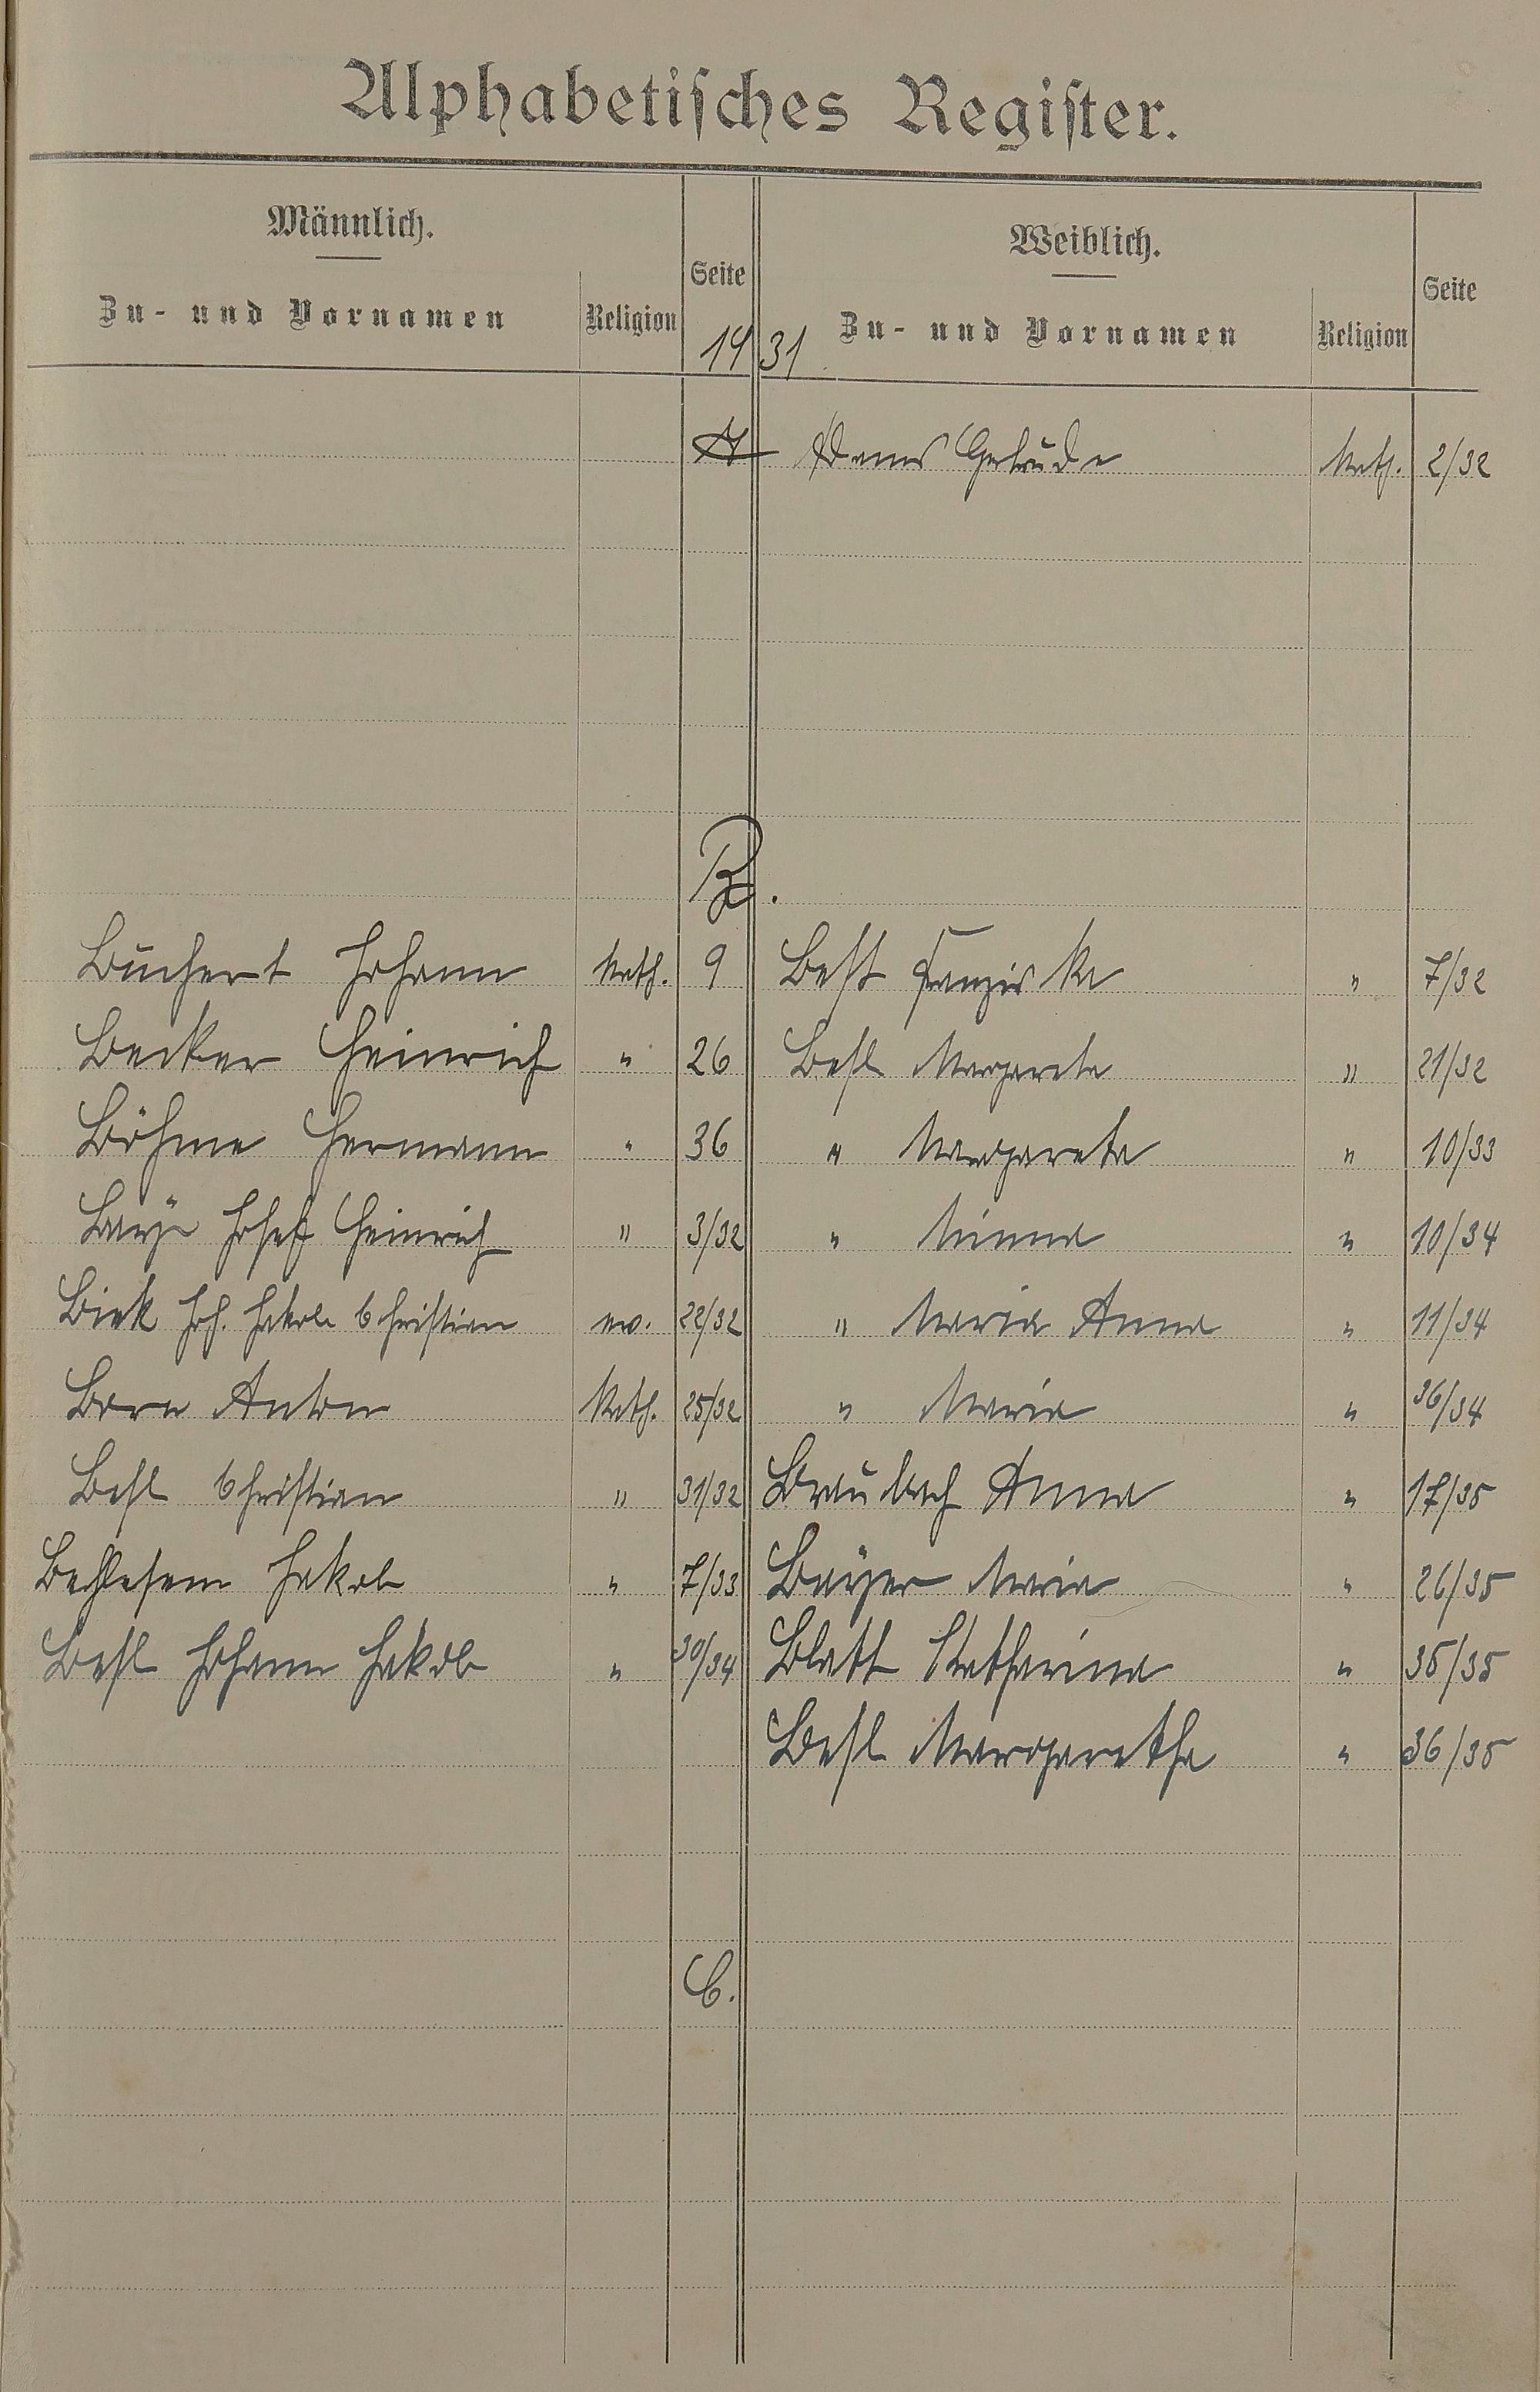 Alphabetisches Register.
Männlich.
Zu- und Vornamen
Religion
Seite
Weiblich.
Zu- und Vornamen
Religion
Seite
1931
A
Adams Gertrude Kath. 2/32
B.
Büchert Johann Kath. 9 Best Franziska " 7/32
Becker Heinrich " 26 Best Margareta " 21/32
Böhme Hermann " 36 " Margareta " 10/33
Josef Heinrich " 3/32 " Minna " 10/34
Biek Joh. Jakob Christian ev. 22/32 " Maria Anna " 11/34
Born Anton Kath. 25/32 " Maria " 36/34
Best Christian " 31/32 Braubach Anna " 17/35
Bethlehem Jakob " 7/33 Bayer Maria " 26/35
Best Johann Jakob " 30/34 Blatt Katharina " 35/35
Best Margaretha " 36/35
C.